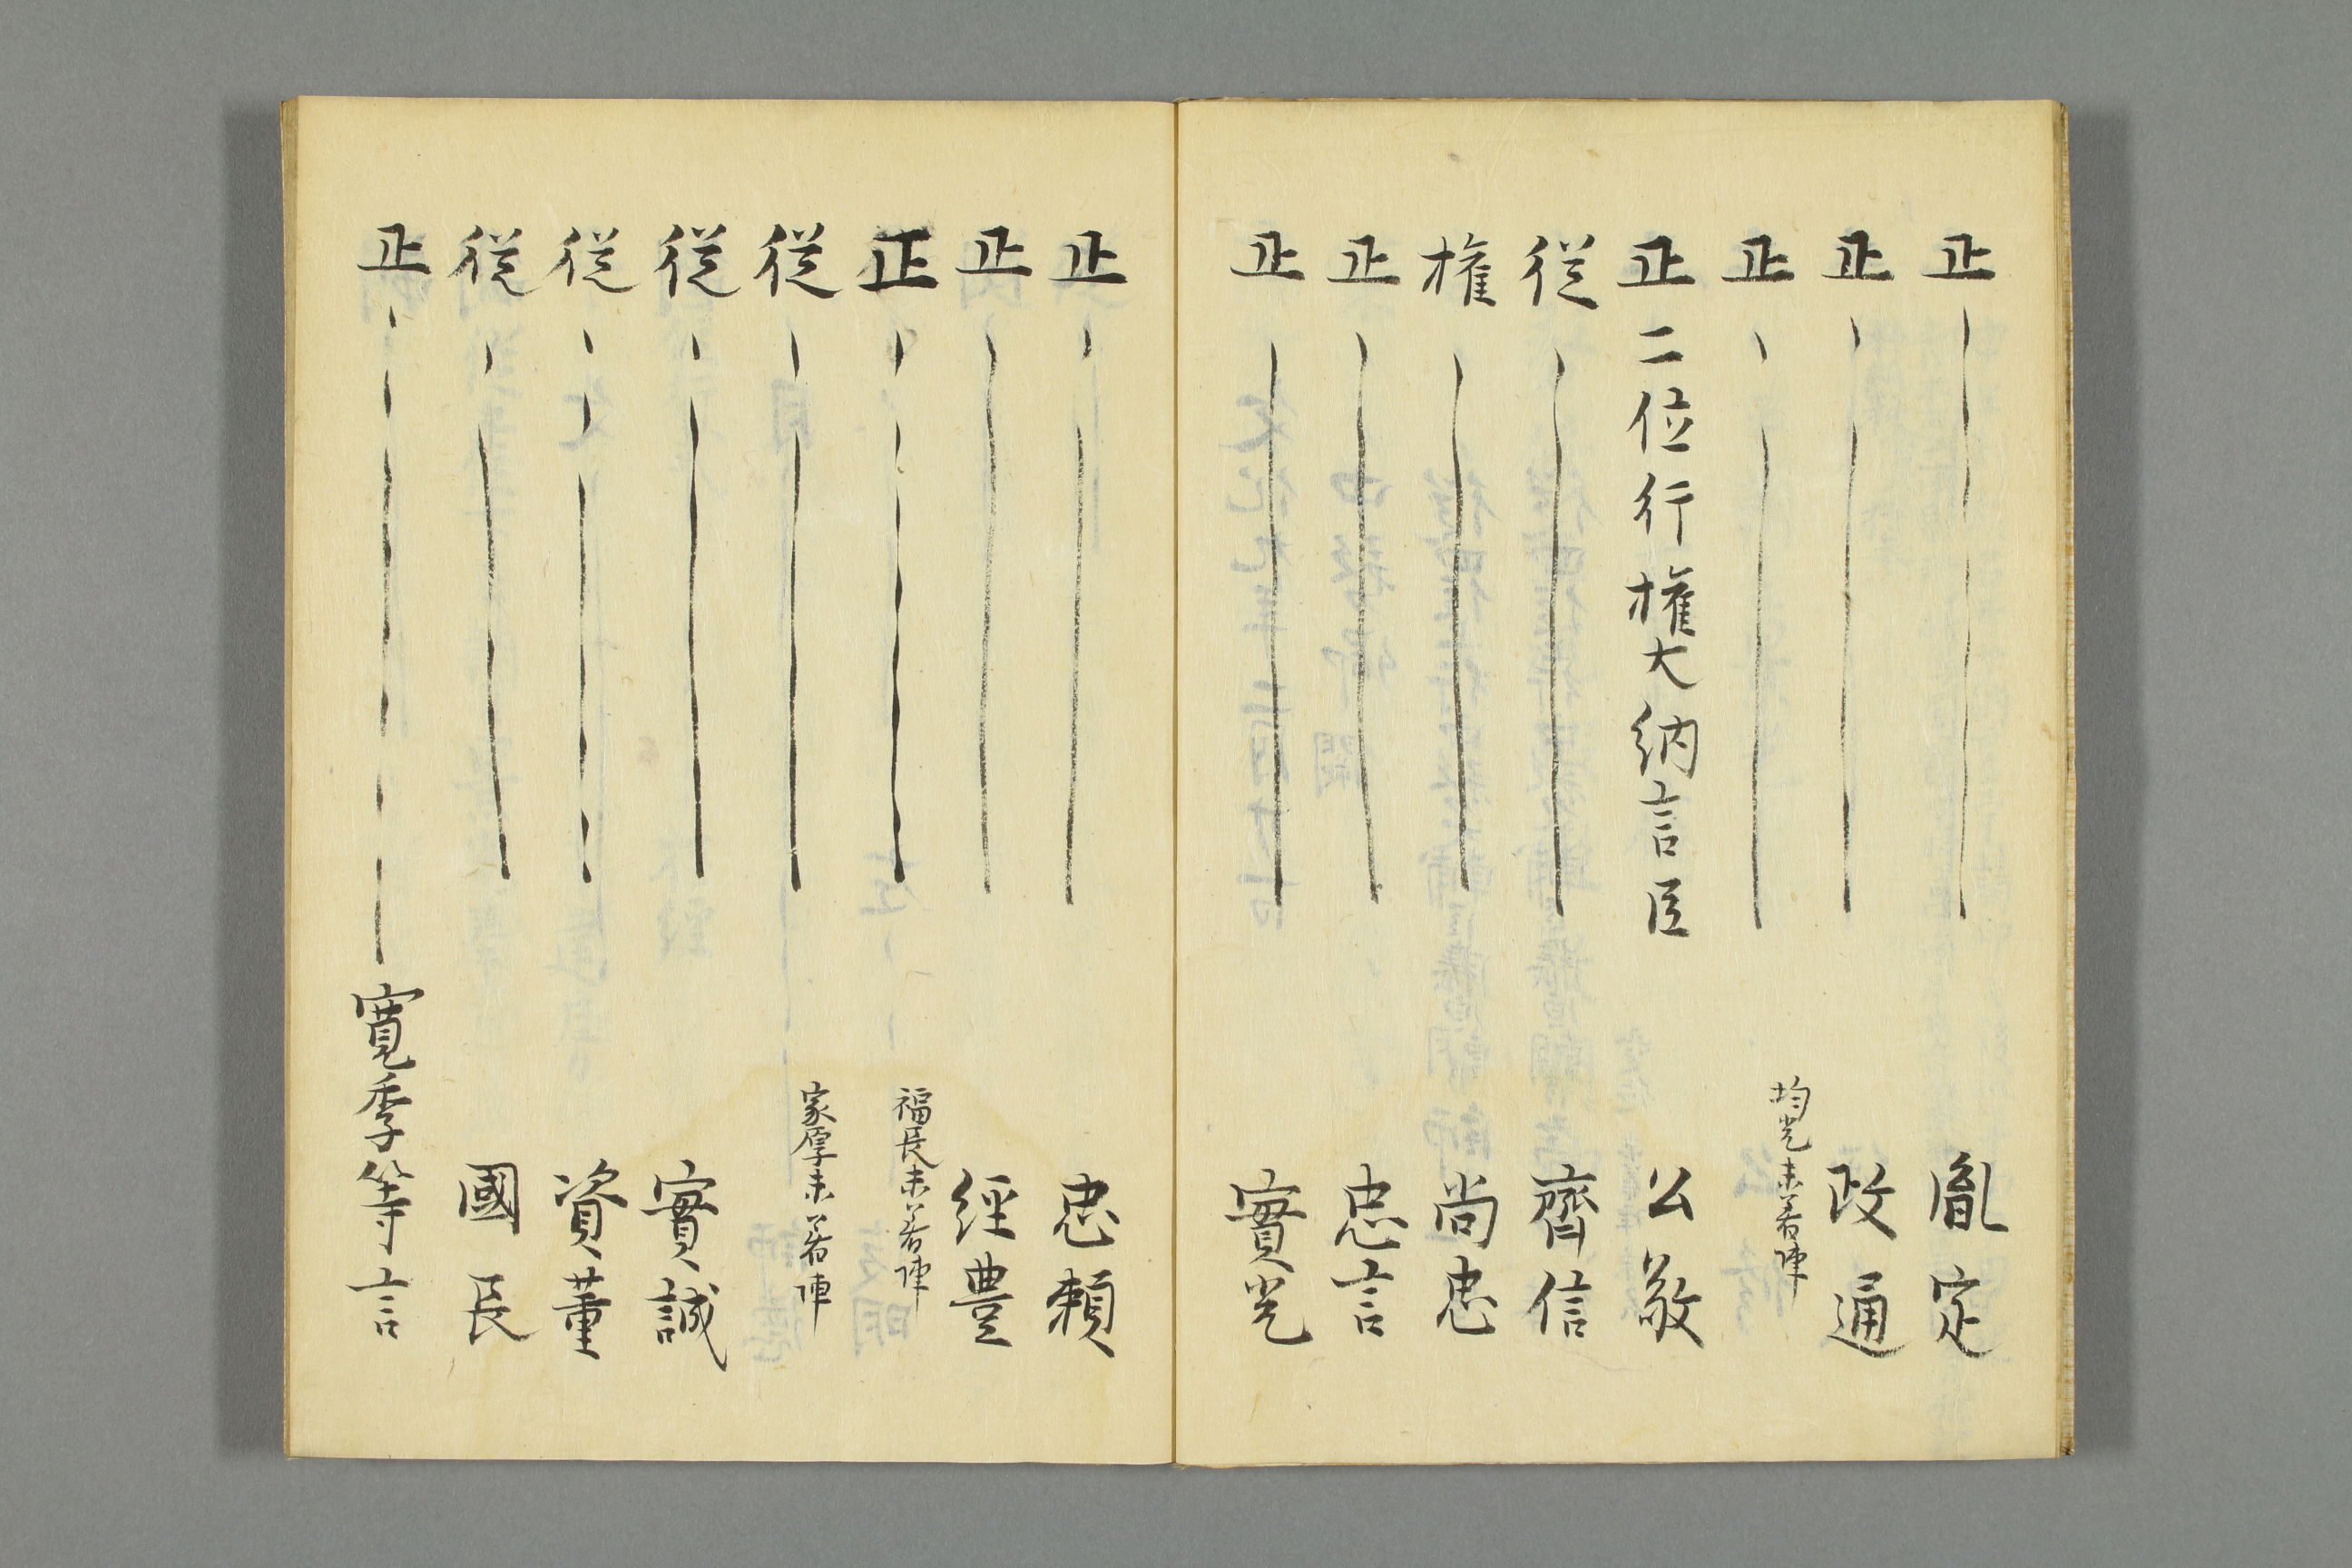 正 胤定
正 政通
正 均光未着陣
正二位行権大納言臣 公敬
従 齊信
権 尚忠
正 忠言
正 實光
正 忠頼
正 経豊
正 福長未着陣
従 家厚未着陣
従 實誠
従 資董
従 國長
正 寛季等言